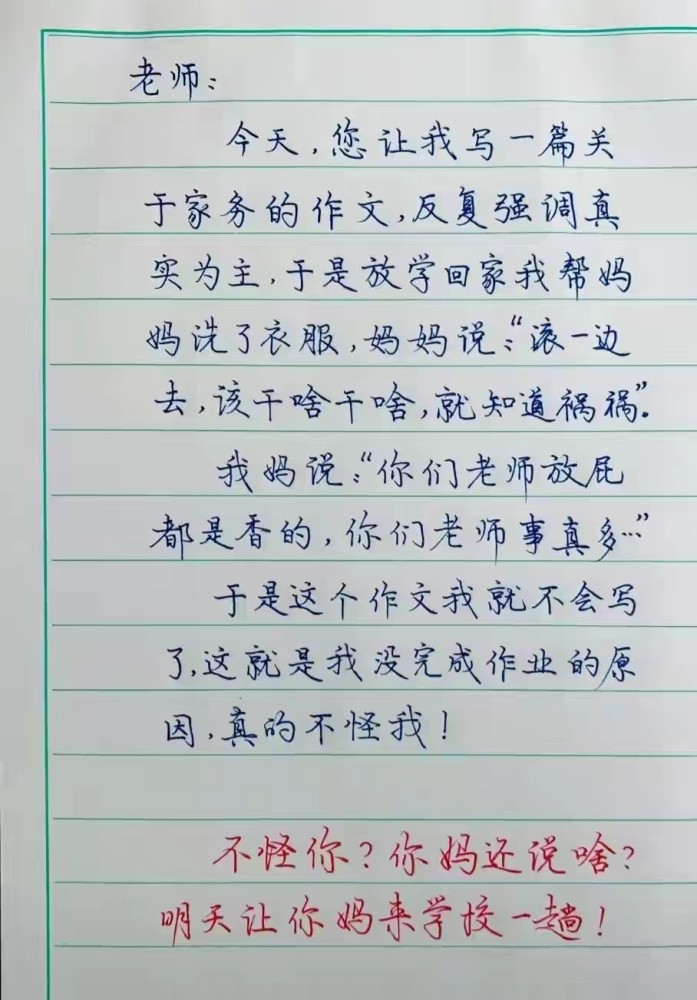 老师：
今天，您让我写一篇关
于家务的作文，反复强调真
实为主，于是放学回家我帮妈
妈洗了衣服，妈妈说：“滚一边
去，该干啥干啥，就知道祸祸”。
我妈说：“你们老师放屁
都是香的，你们老师事真多…”
于是这个作文我就不会写
了，这就是我没完成作业的原
因，真的不怪我！
不怪你？你妈还说啥？
明天让你妈来学校一趟！